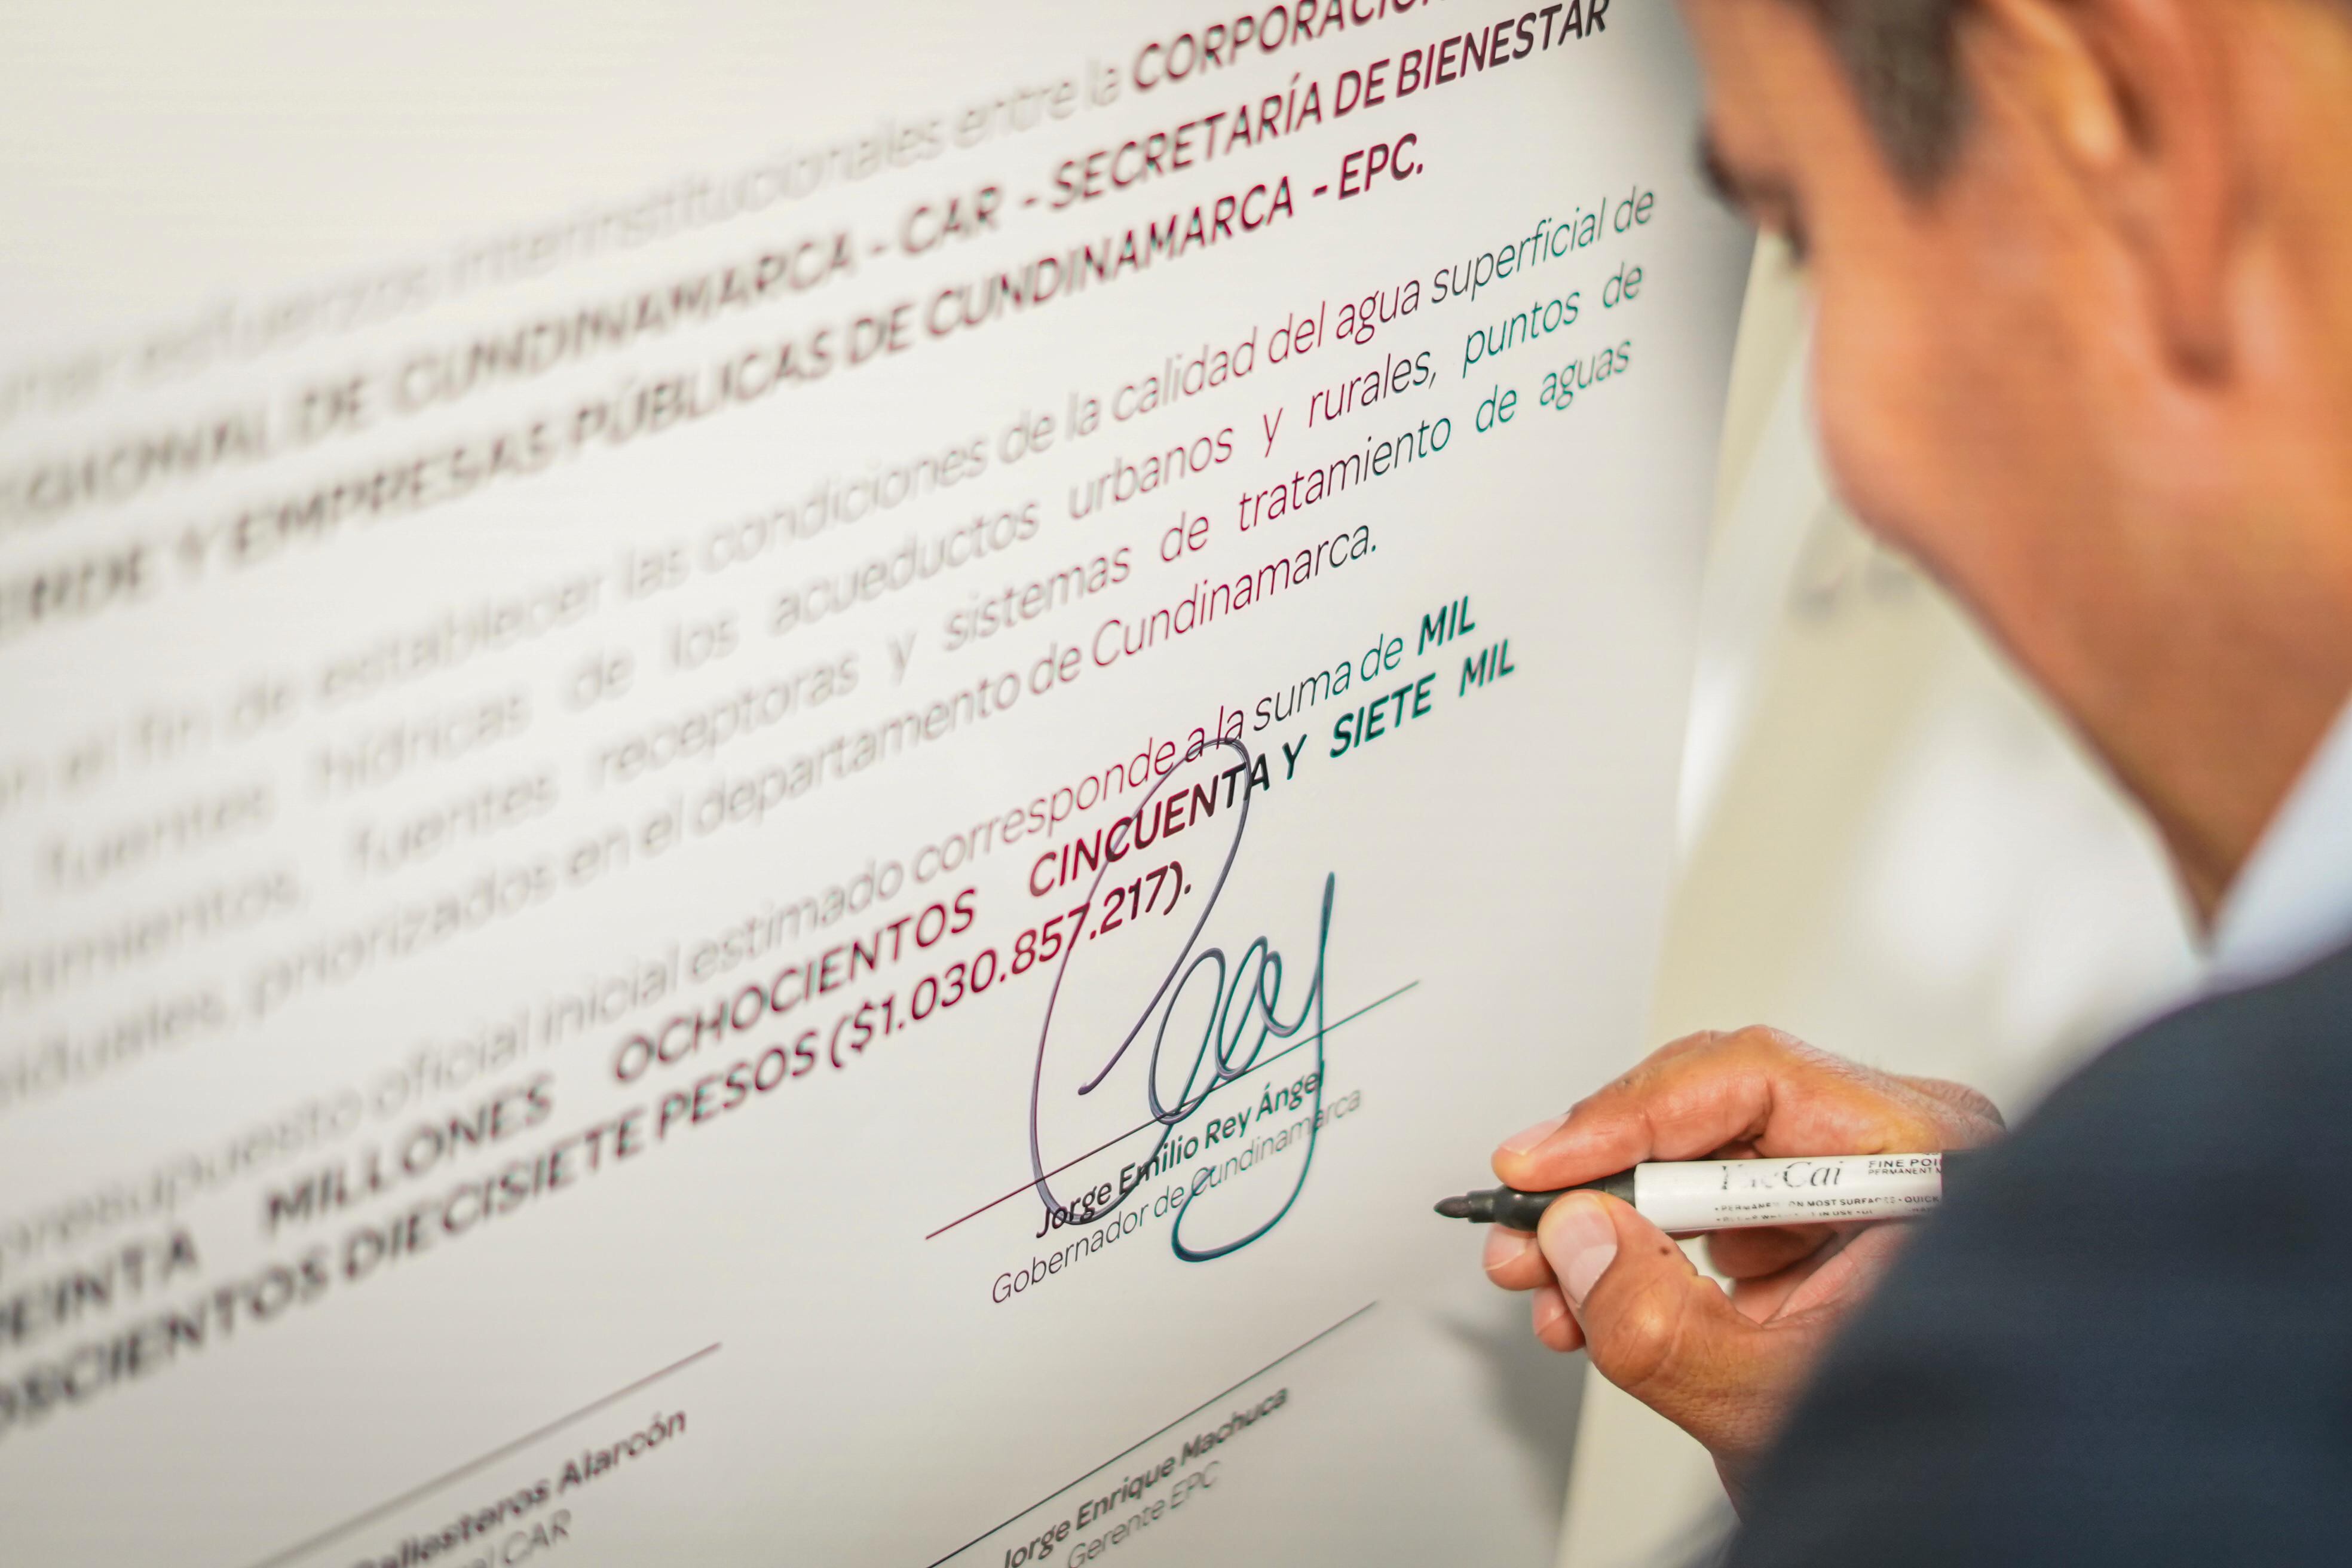 esfuerzos interinstitucionales entre la CORPORACIÓN
REGIONAL DE CUNDINAMARCA - CAR - SECRETARÍA DE BIENESTAR
VERDE Y EMPRESAS PÚBLICAS DE CUNDINAMARCA - EPC.
el fin de establecer las condiciones de la calidad del agua superficial de
fuentes hídricas de los acueductos urbanos y rurales, puntos de
fuentes receptoras y sistemas de tratamiento de aguas
priorizados en el departamento de Cundinamarca.
presupuesto oficial inicial estimado corresponde a la suma de MIL
TREINTA MILLONES OCHOCIENTOS CINCUENTA Y SIETE MIL
DOSCIENTOS DIECISIETE PESOS ($1.030.857.217).
Jorge Emilio Rey Ángel
Gobernador de Cundinamarca
Ballesteros Alarcón
CAR
Jorge Enrique Machuca
Gerente EPC
FINE POI
PERMANENT
ON MOST SURFACES • QUICK